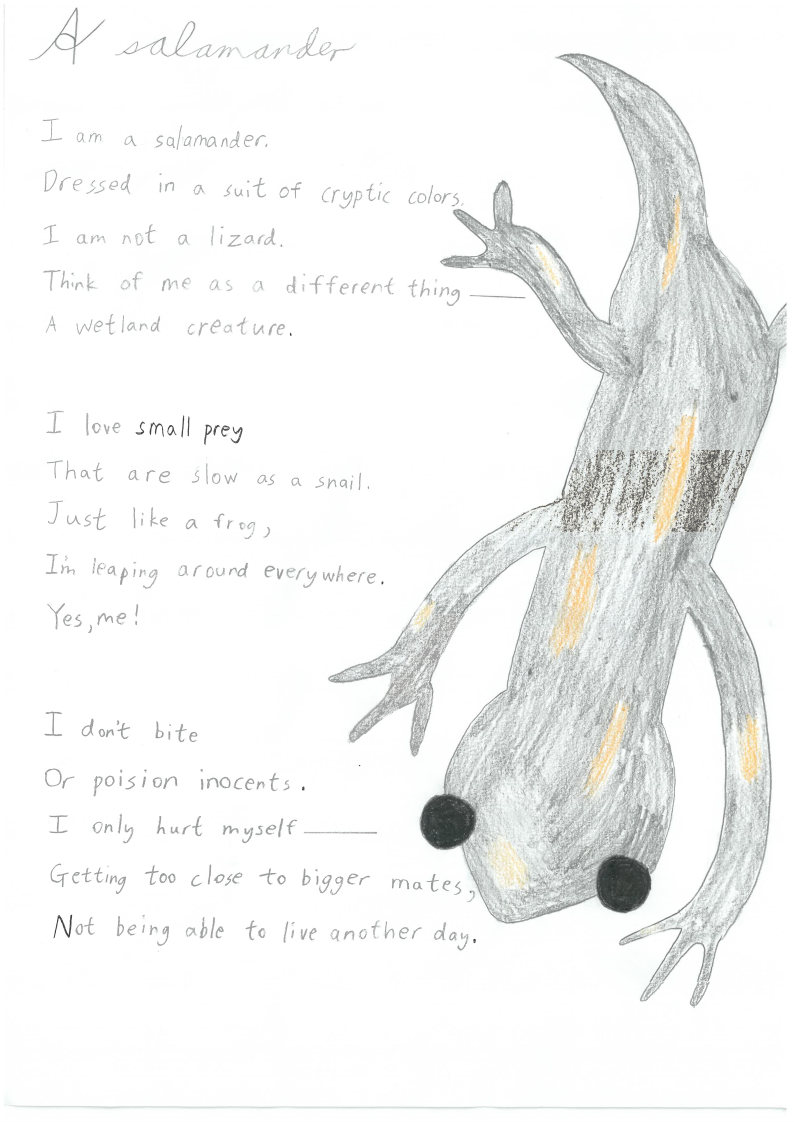 A salamander
I am a salamander.
Dressed in a suit of cryptic colors.
I am not a lizard.
Think of me as a different thing —
A wetland creature.
I love small prey
That are slow as a snail.
Just like a frog,
I'm leaping around everywhere.
Yes, me!
I don't bite
Or poision inocents.
I only hurt myself —
Getting too close to bigger mates,
Not being able to live another day.